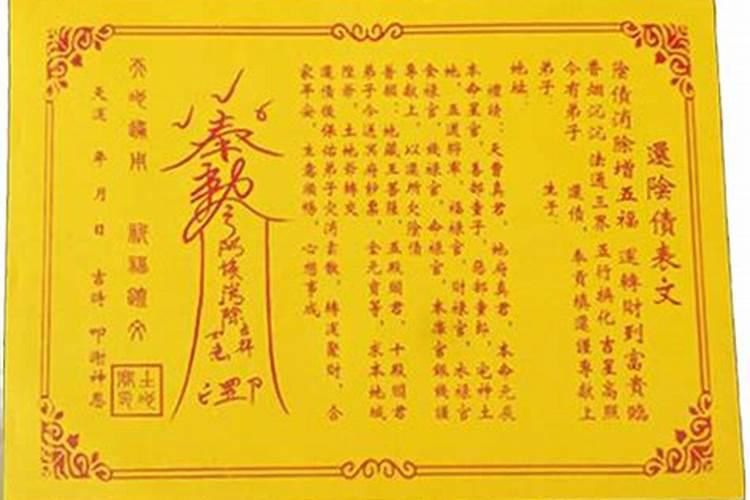 還陰債表文
陰債消除增五福 運轉財到富貴臨
香烟沉沉 法通三界 五行換化 吉星高照
今有弟子 還債，奉貢填還謹專献上
弟子： 生于：
地址：
禮請：天曹真君，地府真君，本命元辰
本命星官，善部童子，惡部童子，宅神土
地，五道將軍，福禄官，財禄官，衣禄官
食禄官，錢禄官，命禄官，本庫官銀錢謹
專献上，以還所欠陰債
普願：地藏王菩薩，五殿閻君，十殿閻君
弟子今還冥府鈔票，金元寶等，求本地城
隍爺，土地爺轉交
還債後保佑弟子灾消索散，轉運聚財，合
家平安，生意順暢，心想事成。
奉勅令
陰債消除
天運 年 月 日 吉時 叩謝神恩